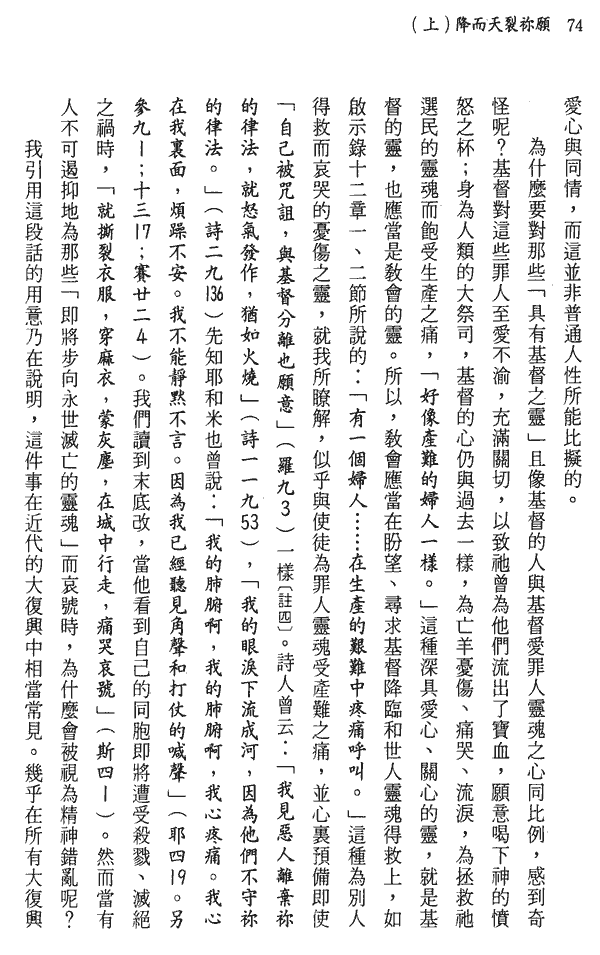 74　願祢裂天而降（上）
愛心與同情，而這並非普通人性所能比擬的。
為什麼要對那些「具有基督之靈」且像基督的人與基督愛罪人靈魂之心同比例，感到奇
怪呢？基督對這些罪人至愛不渝，充滿關切，以致祂曾為他們流出了寶血，願意喝下神的憤
怒之杯；身為人類的大祭司，基督的心仍與過去一樣，為亡羊憂傷、痛哭、流淚，為拯救祂
選民的靈魂而飽受生產之痛，「好像產難的婦人一樣。」這種深具愛心、關心的靈，就是基
督的靈，也應當是教會的靈。所以，教會應當在盼望、尋求基督降臨和世人靈魂得救上，如
啟示錄十二章一、二節所說的：「有一個婦人……在生產的艱難中疼痛呼叫。」這種為別人
得救而哀哭的憂傷之靈，就我所瞭解，似乎與使徒為罪人靈魂受產難之痛，並心裏預備即使
「自己被咒詛，與基督分離也願意」（羅九3）一樣〔註四〕。詩人曾云：「我見惡人離棄祢
的律法，就怒氣發作，猶如火燒」（詩一一九53），「我的眼淚下流成河，因為他們不守祢
的律法。」（詩二九136）先知耶和米也曾說：「我的肺腑啊，我的肺腑啊，我心疼痛。我心
在我裏面，煩躁不安。我不能靜默不言。因為我已經聽見角聲和打仗的喊聲」（耶四19。另
參九1；十三17；賽廿二4）。我們讀到末底改，當他看到自己的同胞即將遭受殺戮、滅絕
之禍時，「就撕裂衣服，穿麻衣，蒙灰塵，在城中行走，痛哭哀號」（斯四1）。然而當有
人不可遏抑地為那些「即將步向永世滅亡的靈魂」而哀號時，為什麼會被視為精神錯亂呢？
我引用這段話的用意乃在說明，這件事在近代的大復興中相當常見。幾乎在所有大復興